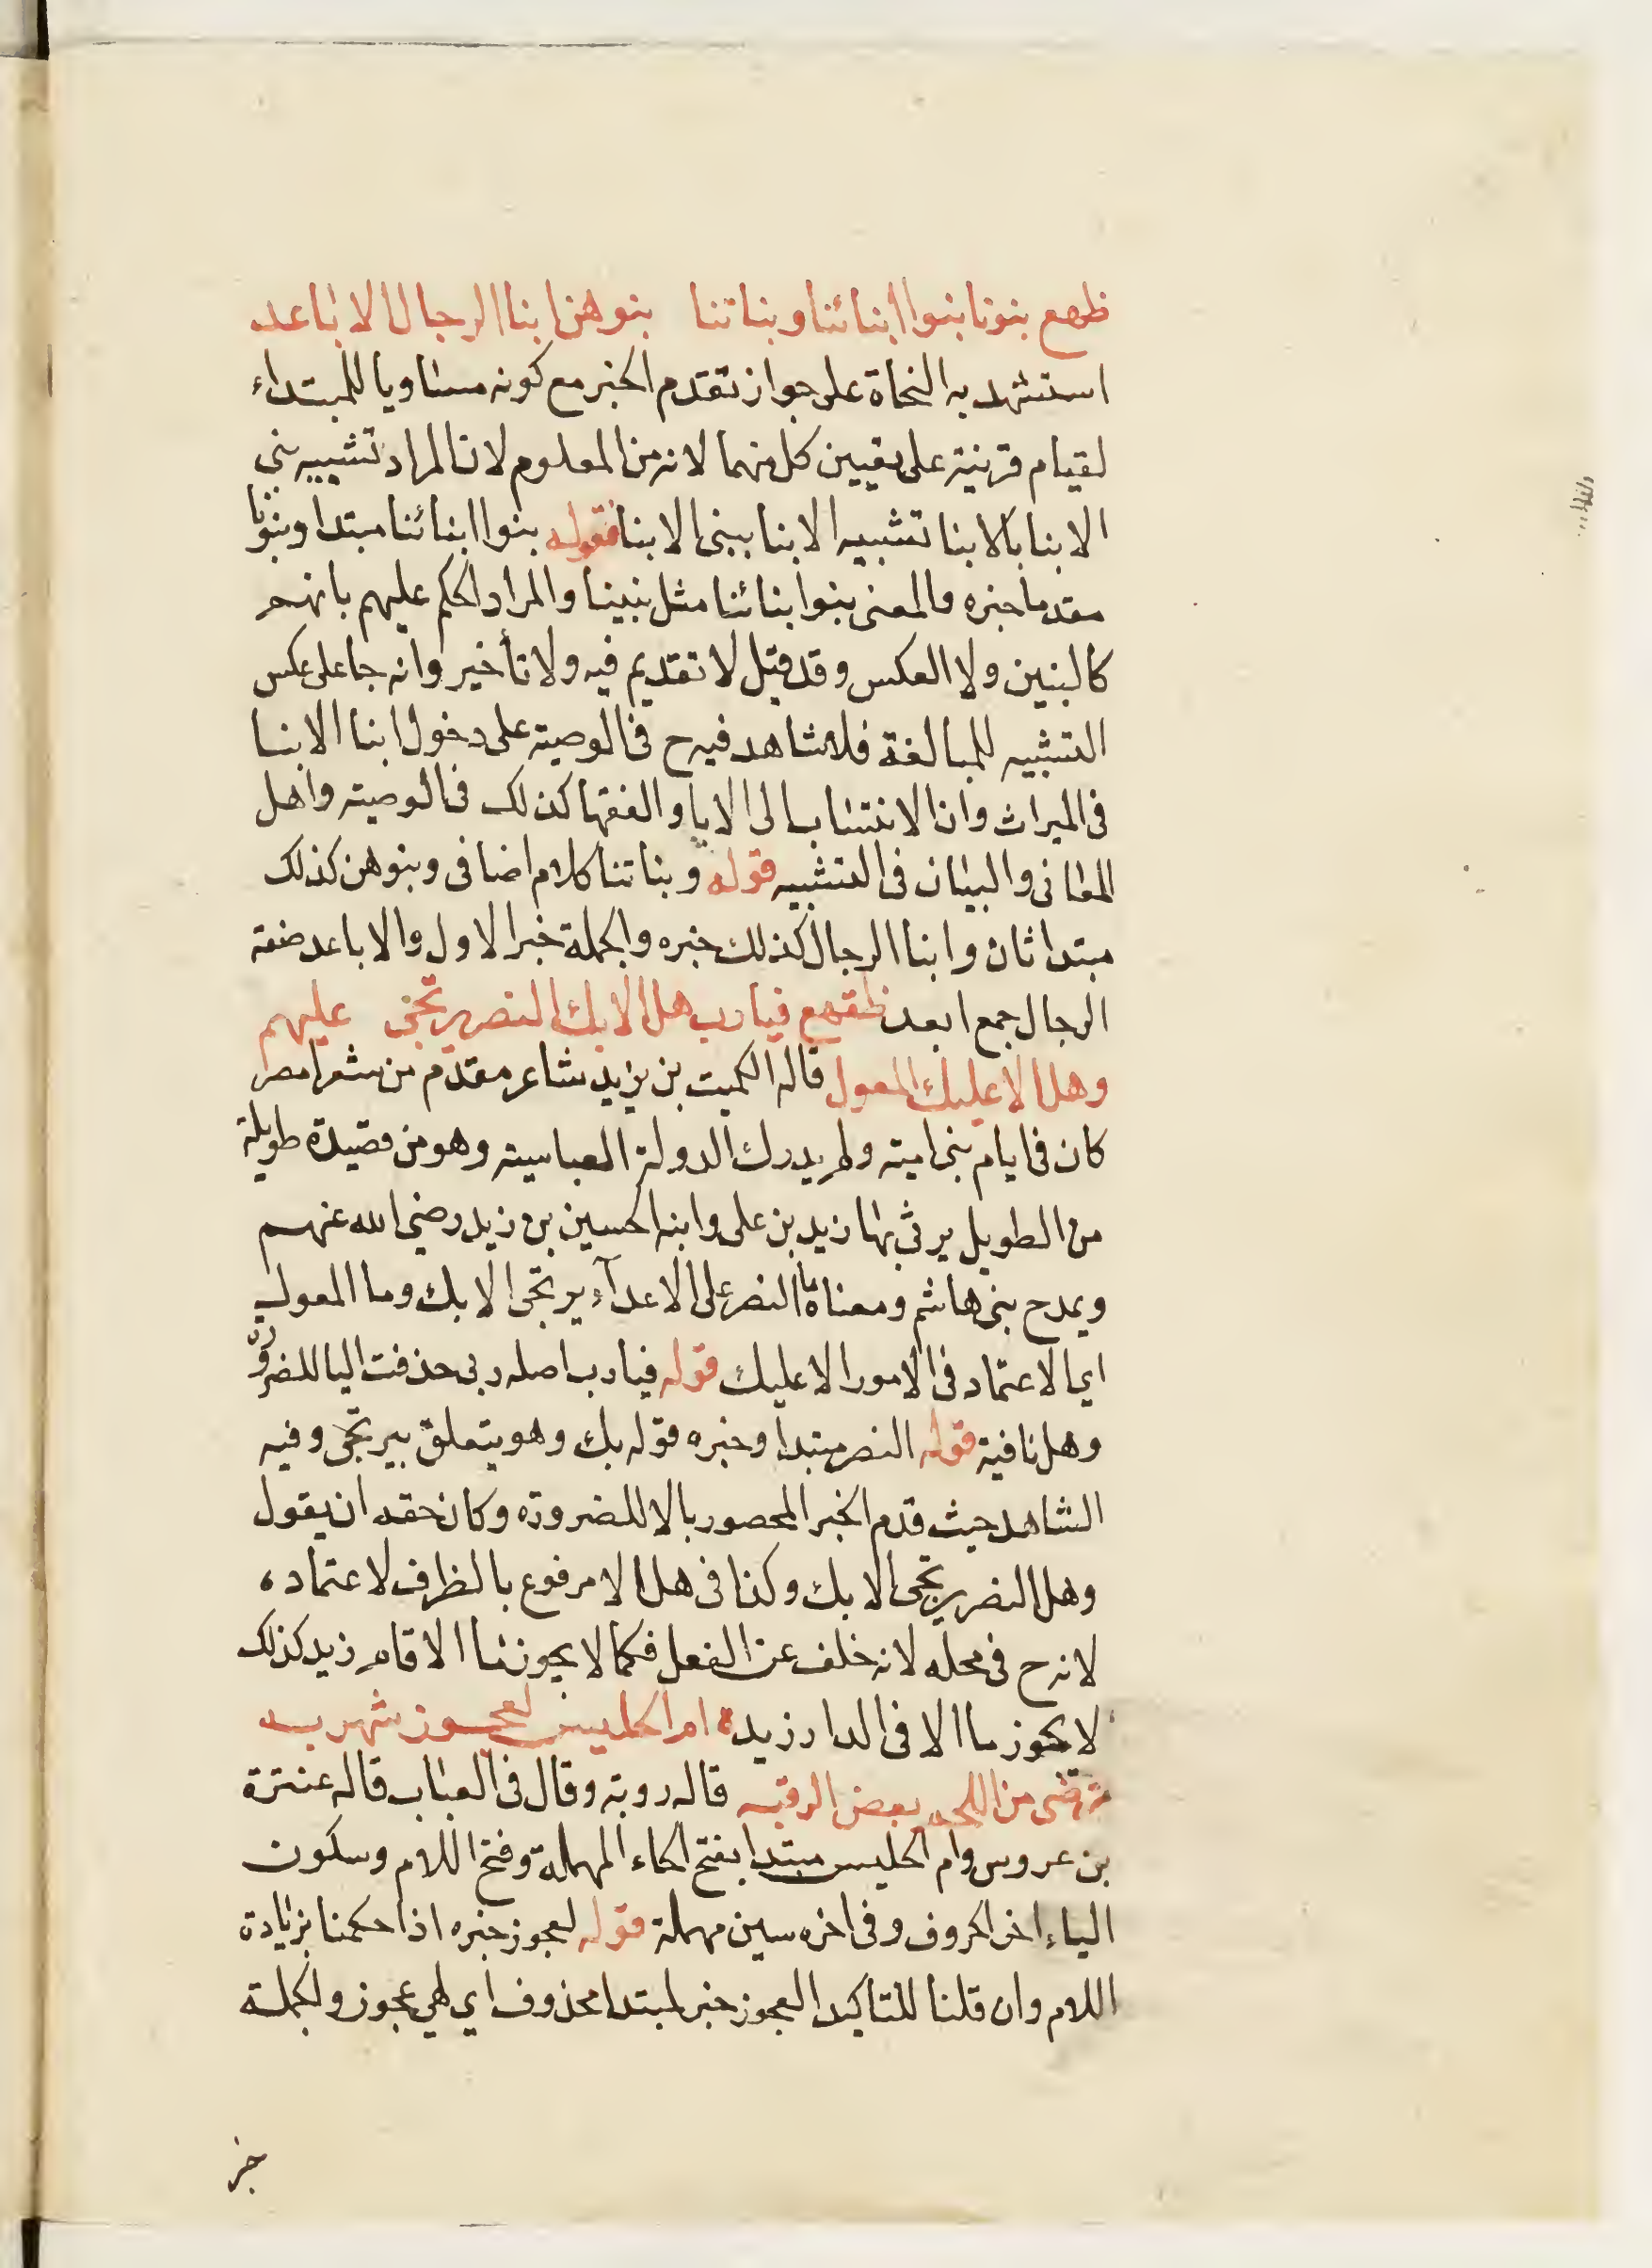 ظهع بنونا بنوا ابنائنا وبناتنا بنوهن ابنا الرجال الاباعد
استشهد به النحاة على جواز تقدم الخبر مع كونه مساويا للمبتداء
لقيام قرينة على تعيين كل منهما لانه من المعلوم لان المراد تشبيه بني
الابنا بالابنا تشبيه الابنا ببنى الابنا فقوله بنوا ابنائنا مبتدا وبنونا
مقدما خبره والمعنى بنوا بنائنا مثل بنينا والمراد الحكم عليهم بانهم
كالبنين ولا العكس وقد قيل لا تقديم فيه ولا تأخير وانه جا على عكس
التشبيه للمبالغة فلا شاهد فيه ح فى الوصية على دخول ابنا الابنا
فى الميراث وان الانتساب الى الابا والفقها كذلك فى الوصية واهل
المعانى والبيان فى التشبيه قوله وبناتنا كلام اضافى وبنوهن كذلك
مبتدا ثان وابنا الرجال كذلك خبره والجملة خبر الاول والاباعد صفة
الرجال جمع ابعد ظقهع فيا رب هل الا بك النصر يرتجى عليهم
وهل الا عليك المعول قاله الكميت بن يزيد شاعر مقدم من شعرا مصر
كان فى ايام بنى امية ولم يدرك الدولة العباسية وهو من قصيدة طويلة
من الطويل يرثى بها زيد بن على وابنه الحسين بن زيد رضى الله عنهم
ويمدح بنى هاشم ومعناه ما النصر على الاعدآء يرتجى الا بك وما المعول
اى الاعتماد فى الامور الا عليك قوله فيا رب اصله ربى حذفت اليا للضرورة
وهل نافية قوله النصر مبتدا وخبره قوله بك وهو يتعلق بيرتجى وفيه
الشاهد حيث قدم الخبر المحصور بالا للضرورة وكان حقه ان يقول
وهل النصر يرتجى الا بك وكذا فى هل الا مرفوع بالظرف لاعتماده
لانه ح فى محله لانه خلف عن الفعل فكما لا يجوز ما الا قام زيد كذلك
لا يجوز ما الا فى الدار زيد ه ام الحليس لعجوز شهربه
ترضى من اللحم بعض الرقبه قاله روبة وقال فى العباب قاله عنترة
بن عروس وام الحليس مبتدا بفتح الحاء المهملة وفتح اللام وسكون
الياء اخر الحروف وفى اخره سين مهملة قوله لعجوز خبره اذا حكمنا بزيادة
اللام وان قلنا للتاكيد العجوز خبر لمبتدا محذوف اى لهى عجوز والجملة
خبر